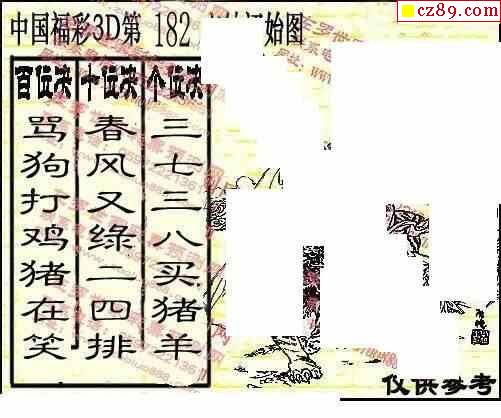 cz89.com
中国福彩3D第 182
始图
百位决 十位决 个位决
骂狗打鸡猪在笑
春风又绿二四排
三七三八买猪羊
仅供参考